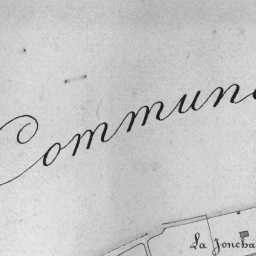 Commun
La Joncha